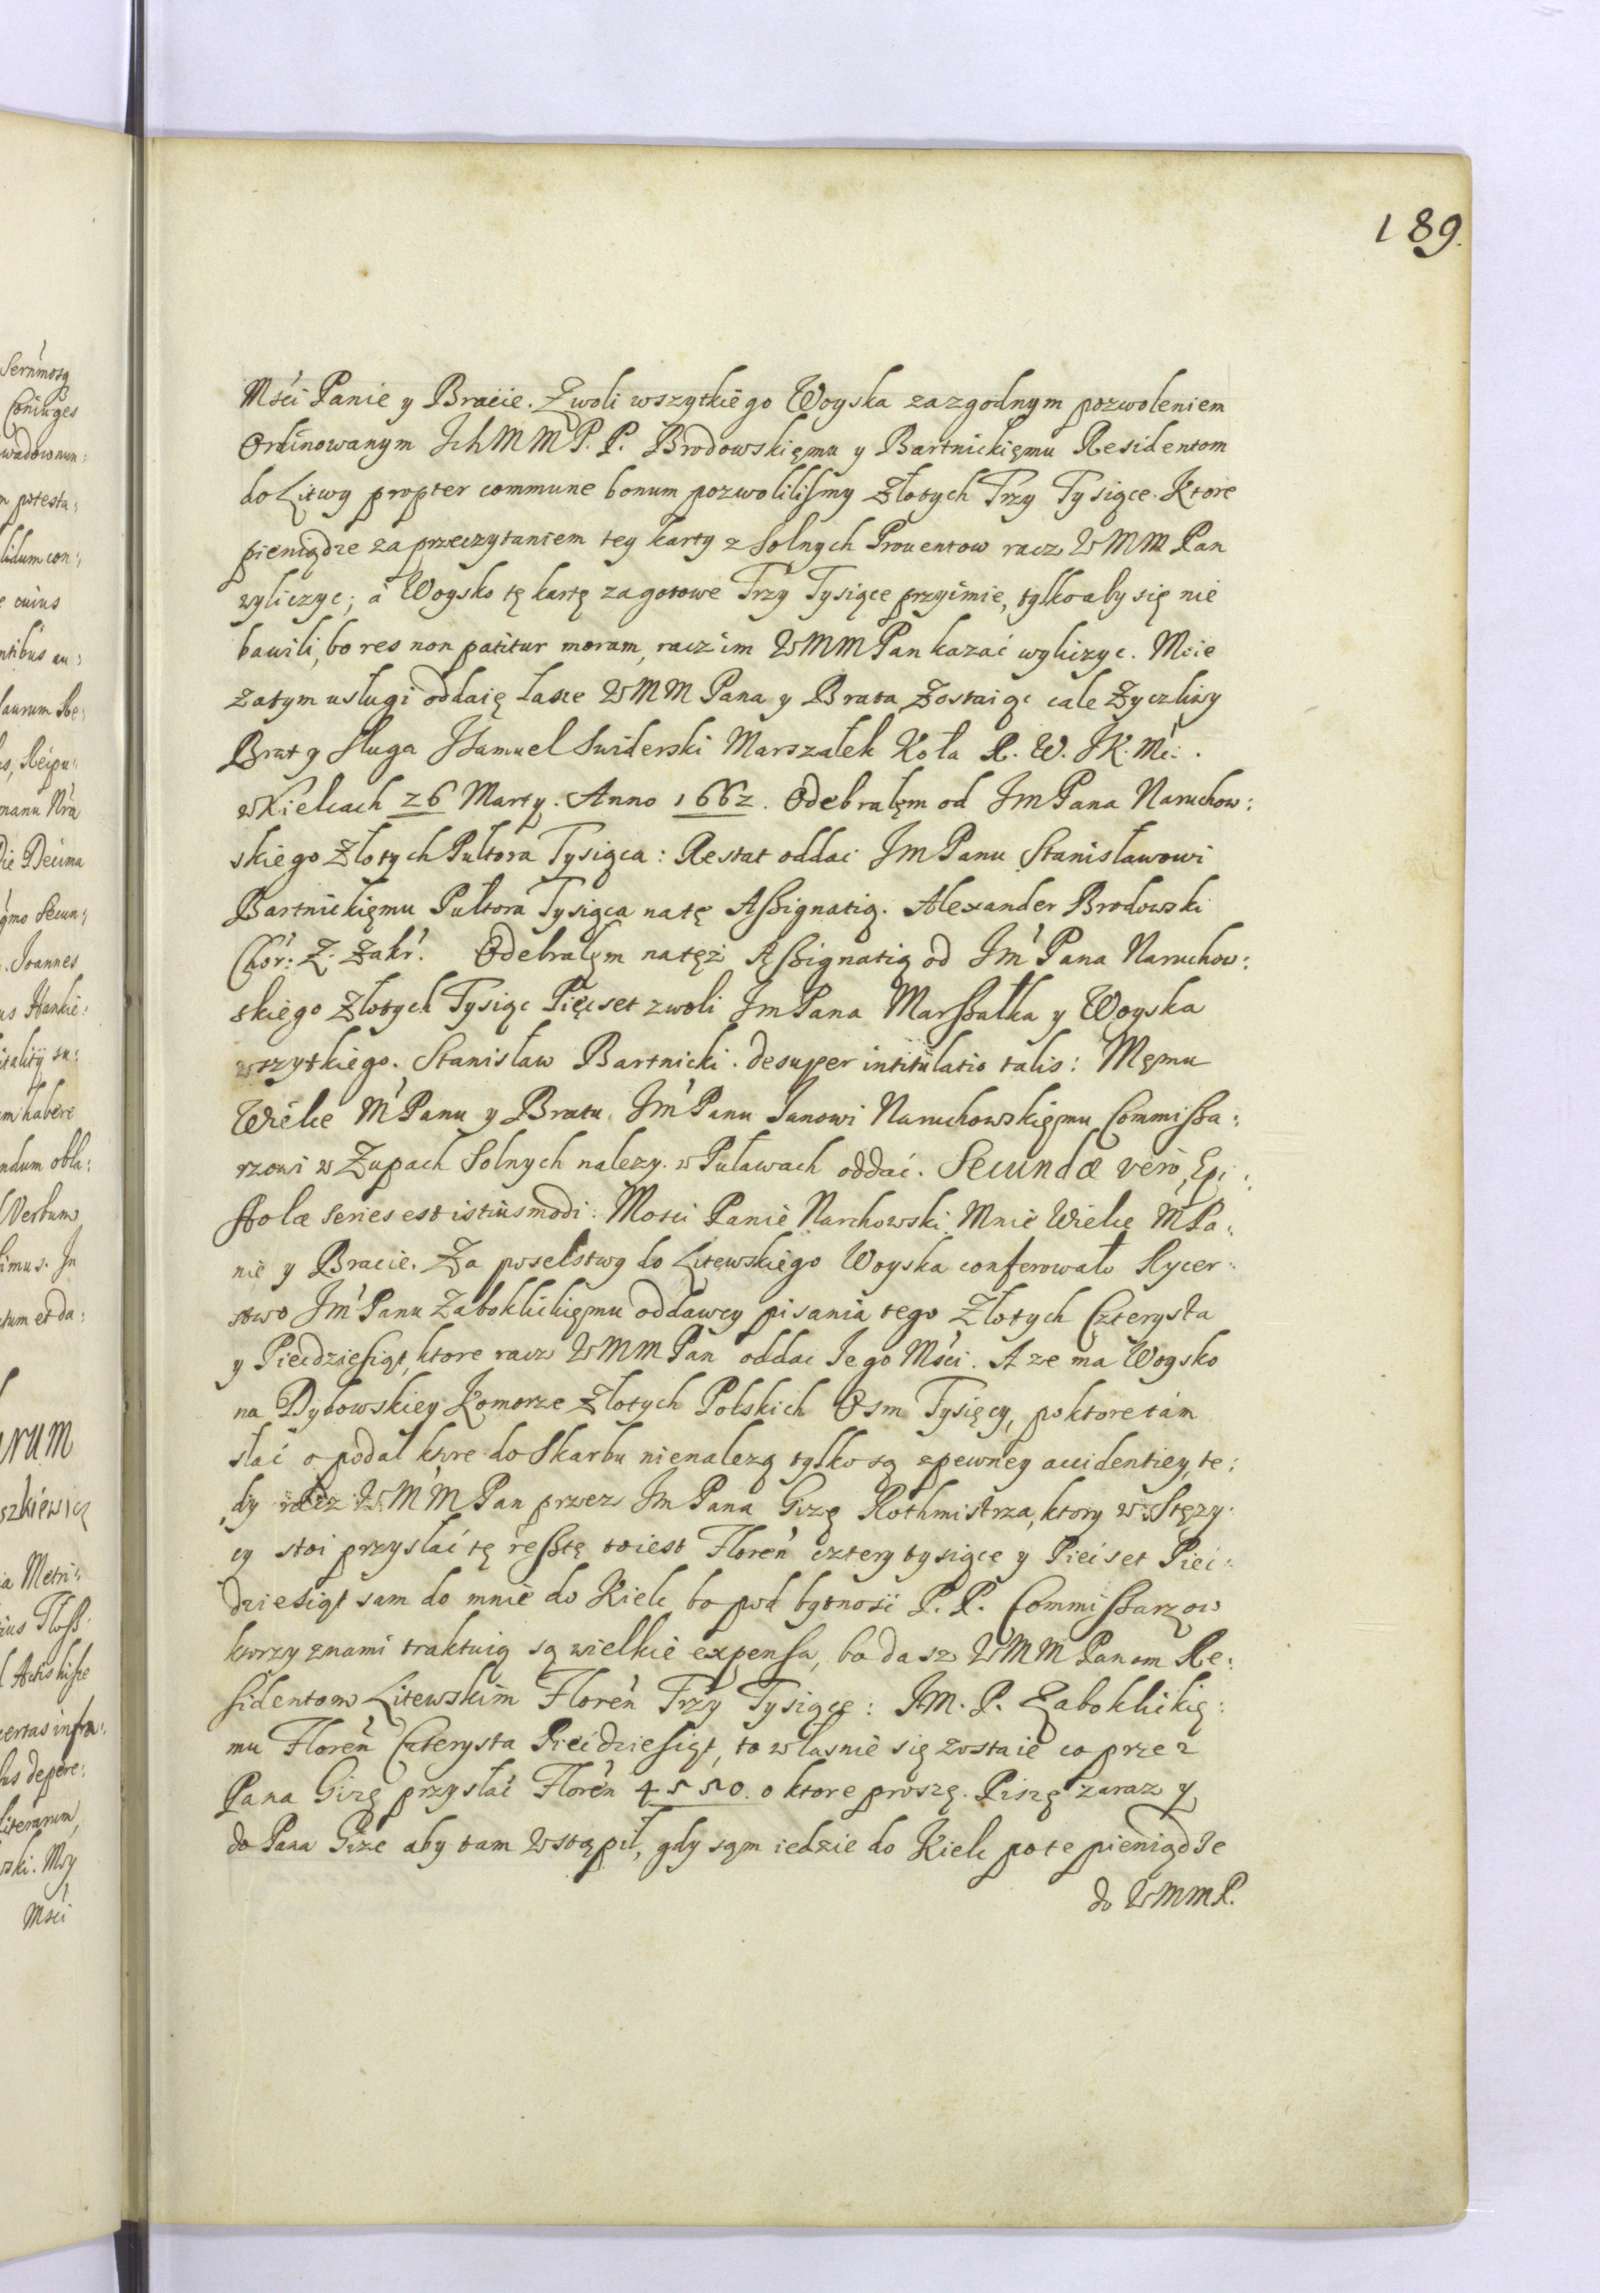 189.
Mści Panie y Bracie. Zwoli wszytkiego Woyska zazgodnym pozwoleniem
Ordinowanym IchMM P. P. Brodowskięmu y Bartnickięmu Residentom
do Litwy propter commune bonum pozwolilismy Złotych Trzy Tysiące. Ktore
pieniądze za przeczytaniem tey karty z Solnych Prouentow racz WMM Pan
wyliczyc; a Woysko tę kartę zagotowe Trzy Tysiące przyimie, tylko aby się nie
bawili, bo res non patitur moram, racz im WMM Pan kazać wyliczyc. Moie
zatym usługi oddaię łasce WMM Pana y Brata Zostaiąc cale Zyczliwy
Brat y Sługa JSamuel Swiderski Marszałek Koła R. W. JK. Mći.
w Kielcach 26 Marty. Anno 1662. Odebrałęm od Jm Pana Naruchow:
skiego Złotych Pułtora Tysiąca: Restat oddac Jm Panu Stanisławowi
Bartnickięmu Pułtora Tysiąca na tę Assignatią. Alexander Brodowski
Chor: Z. Zakr. Odebrałęm na tęż Assignatią od Jm Pana Naruchow:
skiego Złotych Tysiąc Pięcset zwoli Jm Pana Marszałka y Woyska
wszytkiego. Stanisław Bartnicki. desuper intitulatio talis: Męmu
Wielce M Panu y Bratu Jm Panu Janowi Naruchowskięmu Commissa:
rzowi w Zupach Solnych nalezy. w Puławach oddać. Secundæ vero Epi:
stolæ series est istiusmodi: Mosci Panie Narchowski Mnie Wielce M Pa:
nie y Bracie. Za poselstwy do Litewskiego Woyska conferowało Rycer:
stwo Jm Panu Zaboklickięmu oddawcy pisania tego Złotych Czterysta
y Piecdziesiąt, ktore racz WMM Pan oddac Jego Mści. A ze ma Woysko
na Dybowskiey Komorze Złotych Polskich Osm Tysięcy, po ktore tam
słać opodal ktore do Skarbu nienalezą tylko są zpewney accidentiey, te:
dy racz WMM Pan przez Jm Pana Gizę Rothmistrza, ktory w Stęzy:
cy stoi przysłać tę resztę toiest Floren cztery tysiące y Piecset Piec:
dziesiąt sam do mnie do Kielc bo pod bytnosc P. P. Commissarzow
ktorzy znami traktuią są wielkie expensa, bo dasz WMM Panom Re:
sidentom Litewskim Floren Trzy Tysiące: JM. P. Zaboklickię:
mu Floren Czterysta Piecdziesiąt, to własnie się zostaie co przez
Pana Gizę przysłać Floren 4550. o ktore proszę. Piszę zaraz y
do Pana Gize aby tam Wstąpił, gdy sąm iedzie do Kielc po te pieniądze
do WMMP.